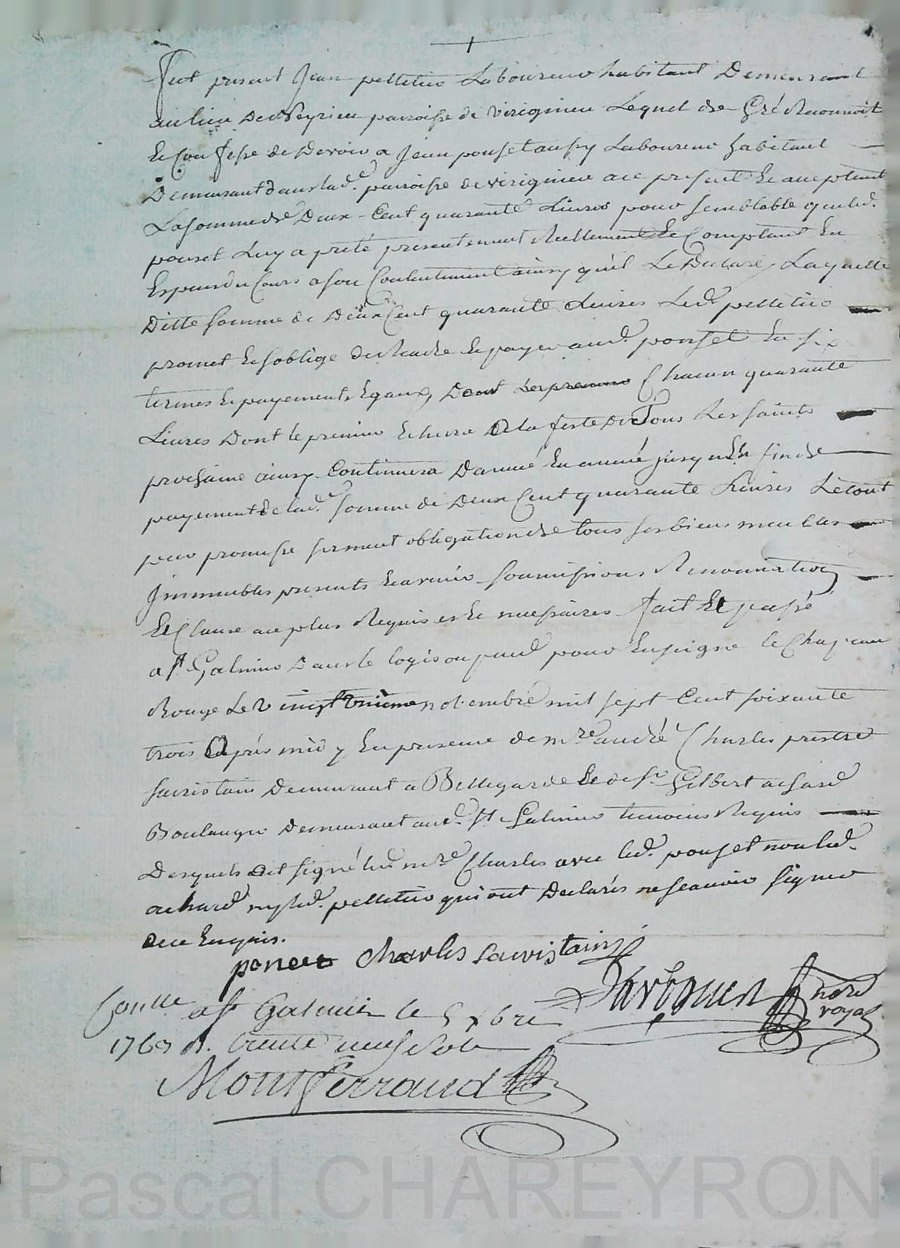 fut present Jean pelletier Laboureur habitant Demeurant
au lieu De Veyrieu parroisse de virigineu Lequel de Gré Reconnoit
Et Confesse de Devoir a Jean ponset aussy Laboureur habitant
Demeurant dans lad.e parroisse de virigineu ace present Et aceptent
La somme de Deux-Cent quarante Livres pour semblable que led.
ponset Luy a preté presentement Reellement Et Comptant En
Especes du Cours a son Contentement ainsy qu'il Le Declare, Laquelle
Ditte somme de Deux Cent quarante Livres Led. pelletier
promet Et soblige de Rendre Et payer aud. ponset En six
termes Et payements Egaux, Dont Les premier Chacun quarante
Livres Dont le premier Echerra a la feste De Tous Les saints
prochaine ainsy Continuera Dannée En année jusqu'En fin de
payement de lad. somme de Deux Cent quarante Livres Le tout
pour promesse serment obligation de tous ses biens meubles
Immeubles presents Et avenir soumissions Renonciations
Et Clause au plus Requises Et necessaires fait Et passé
a St. Galmier Dans le logis ou pend pour Enseigne le Chapeau
Rouge Le vingt unieme novembre mil sept Cent soixante
trois Après midy En presence de mre. andré Charles prestre
sacristain Demeurant a Bellegarde Et de Sr. Gilbert achard
Boulanger Demeurant aud. St. Galmier temoins Requis
Desquels a signé led. mre. Charles avec led. ponset non led.
achard ny led. pelletier qui ont Declarés ne scavoir signer
de ce Enquis.
poncet Charles sacristain
Darbouen nore royal
Conlle a St Galmier le 5 xbre
1763 R. trente neuf sols
Montferraud
Pascal CHAREYRON